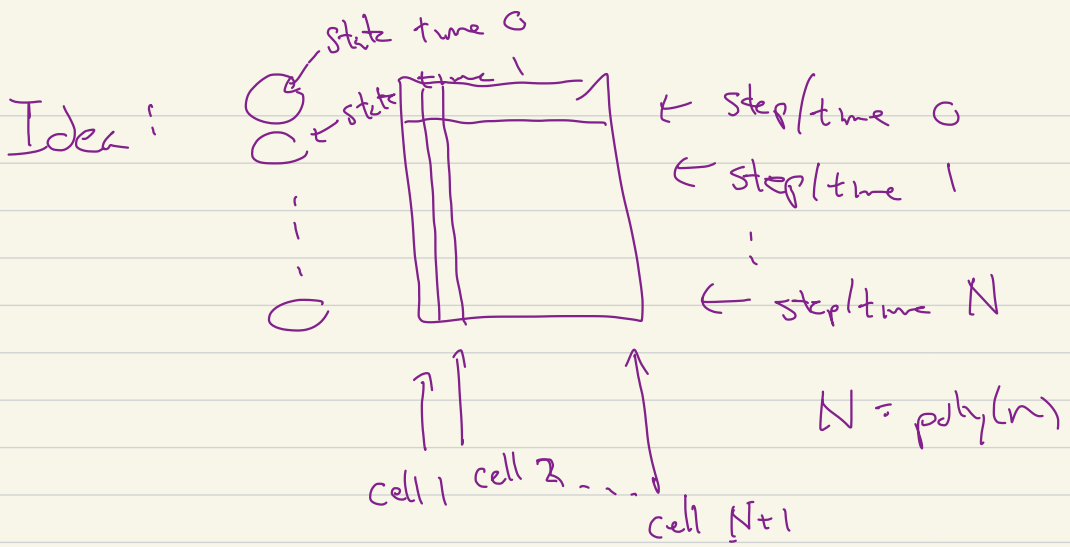 state time 0
Idea:
state time 1
← step/time 0
← step/time 1
⋮
← step/time N
N = poly(n)
cell 1 cell 2 . . . .
cell N+1